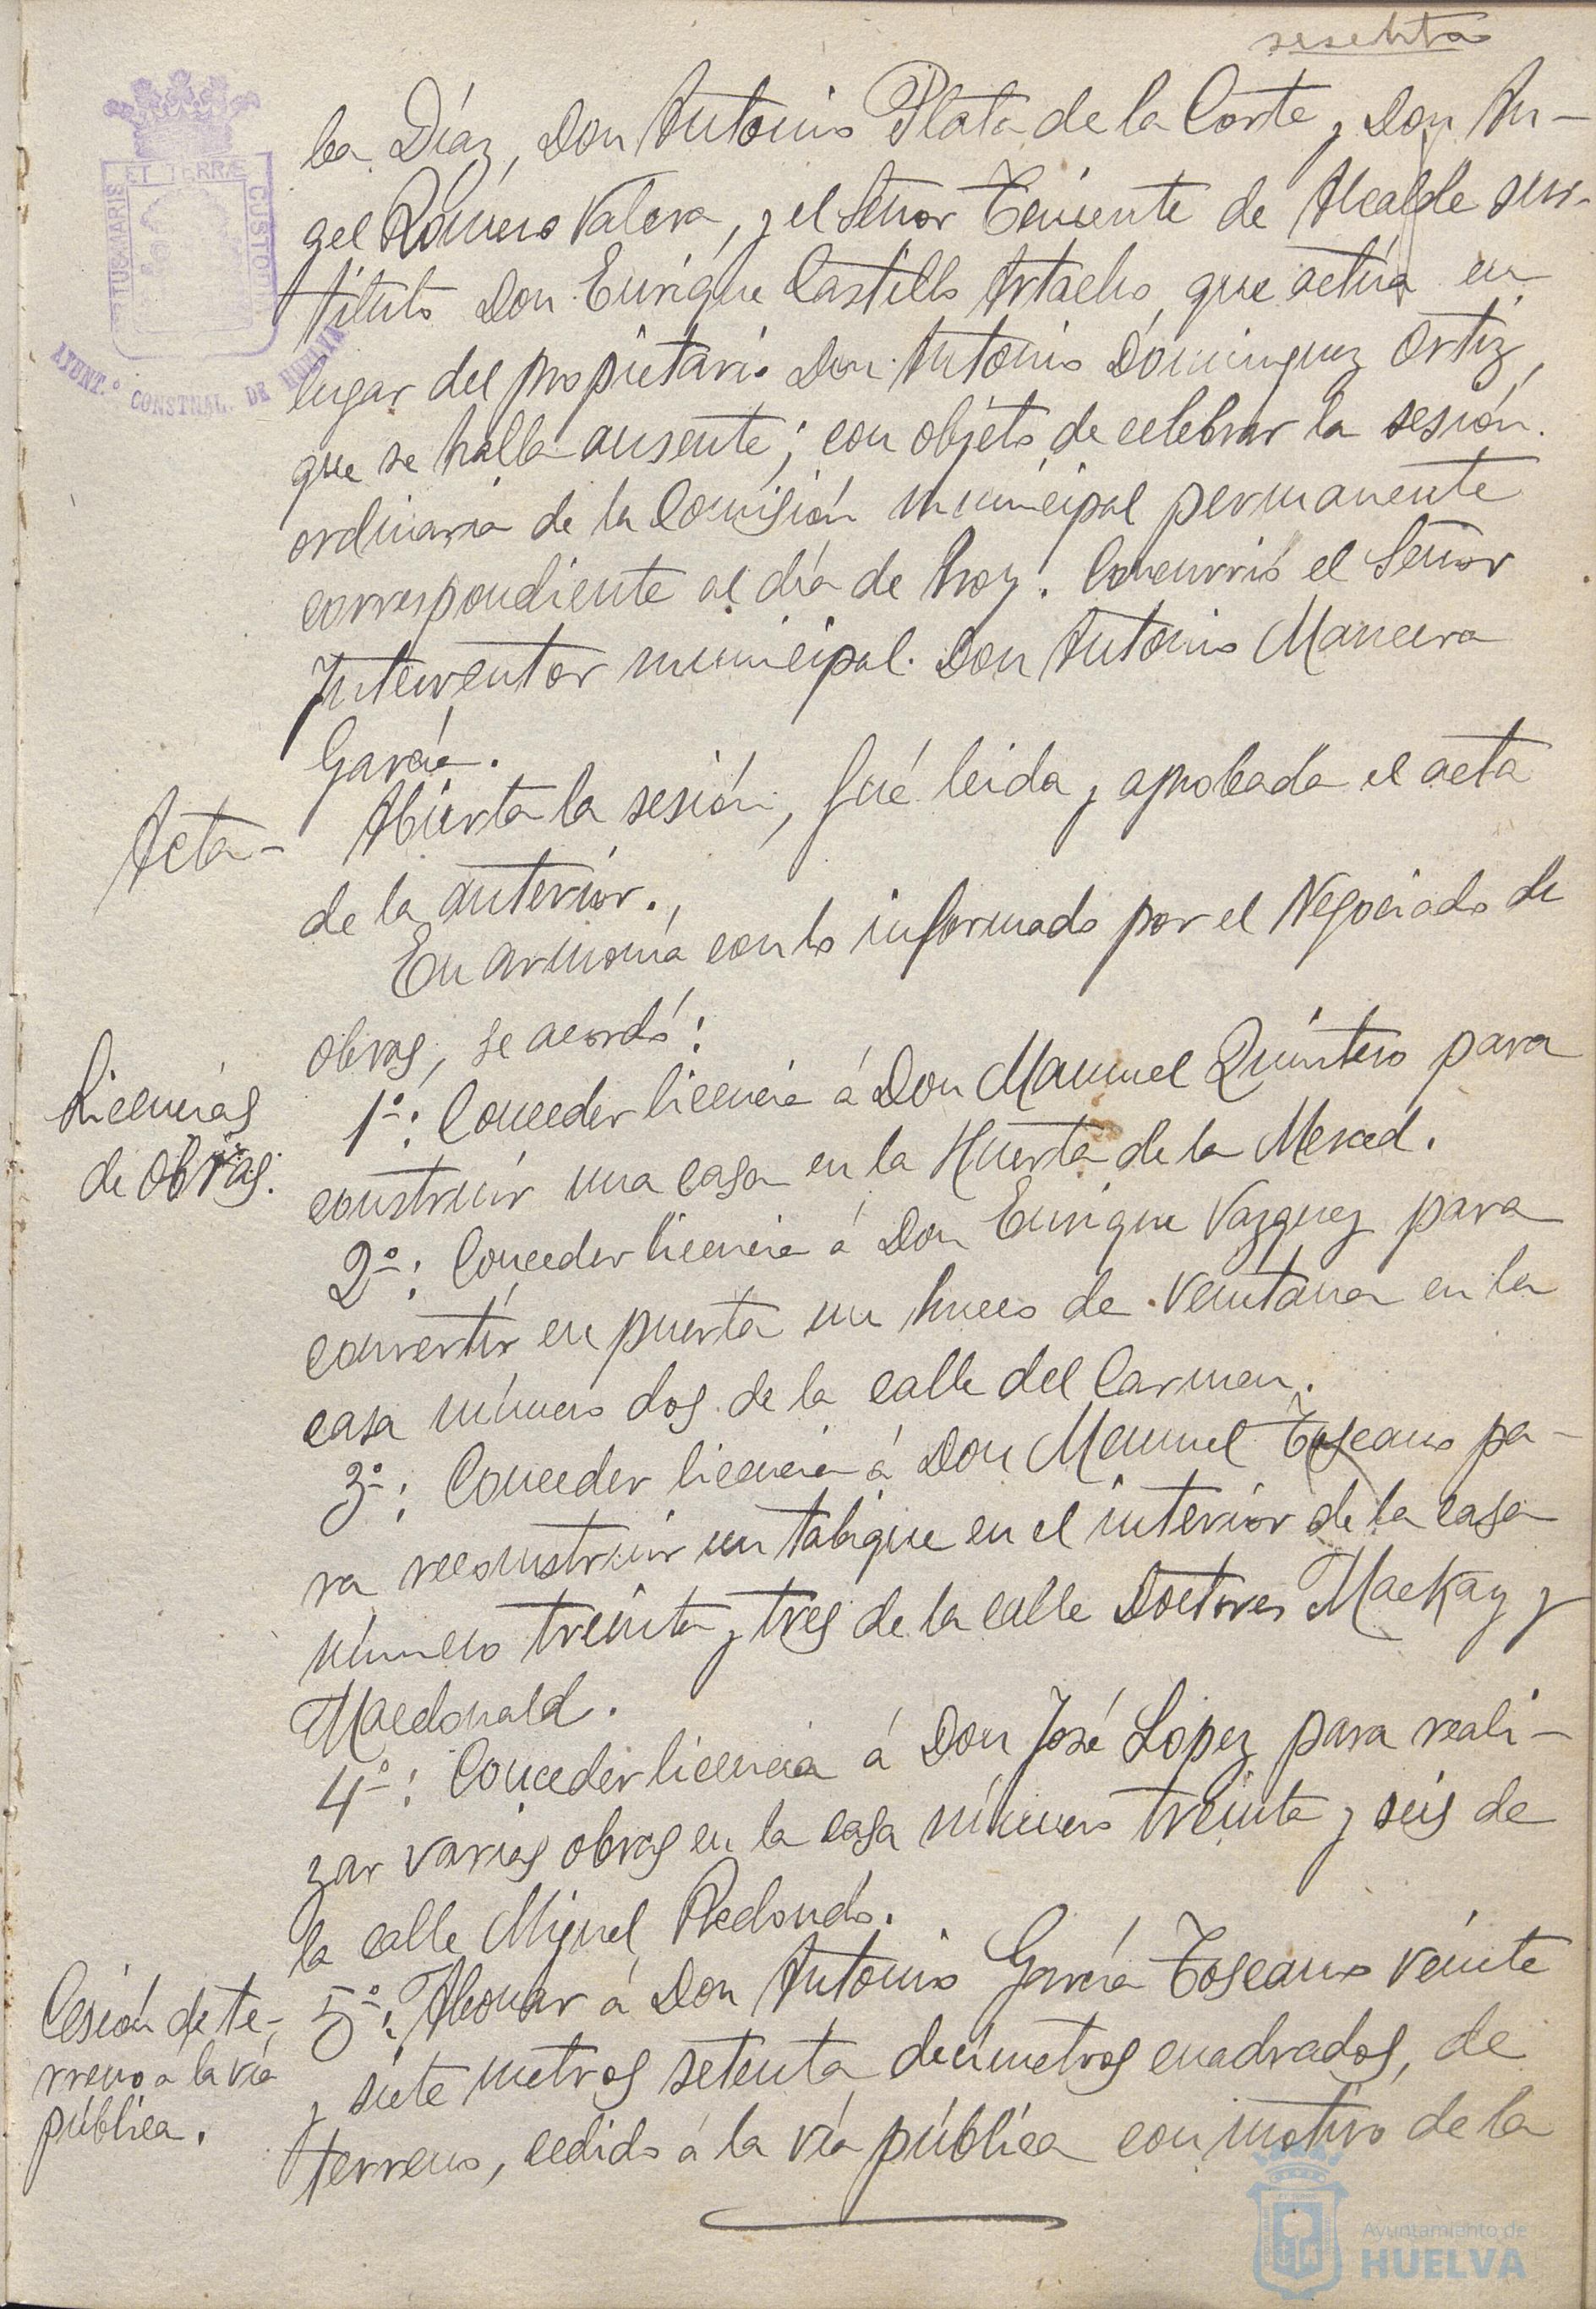 sesenta
ba Díaz, Don Antonio Plata de la Corte y Don An-
gel Romero Valera, y el Señor Teniente de Alcalde sus-
tituto Don Enrique Castillo Artacho, que actúa en
lugar del propietario Don Antonio Dominguez Ortiz,
que se halla ausente; con objeto de celebrar la sesión
ordinaria de la Comisión municipal permanente
correspondiente al día de hoy. Concurrió el Señor
Interventor municipal Don Antonio Manceira
García.
Acta- Abierta la sesión, fué leida y aprobada el acta
de la anterior.
En armonía con lo informado por el Negociado de
obras, se acordó:
Licencias
de obras.
1º: Conceder licencia á Don Manuel Quintero para
construir una casa en la Huerta de la Merced.
2º: Conceder licencia á Don Enrique Vazquez para
convertir en puerta un hueco de ventana en la
casa número dos de la calle del Carmen.
3º: Conceder licencia á Don Manuel Toscano pa-
ra reconstruir un tabique en el interior de la casa
número treinta y tres de la calle Doctores Mackay y
Macdonald.
4º: Conceder licencia á Don José Lopez para reali-
zar varias obras en la casa número treinta y seis de
la calle Miguel Redondo.
Cesión de te-
rreno a la vía
pública.
5º: Abonar á Don Antonio García Toscano veinte
y siete metros setenta decímetros cuadrados, de
terreno, cedido á la vía pública con motivo de la
PORTUS MARIS ET TERRÆ CUSTODIA
AYUNT.º CONSTNAL. DE HUELVA
Ayuntamiento de
HUELVA